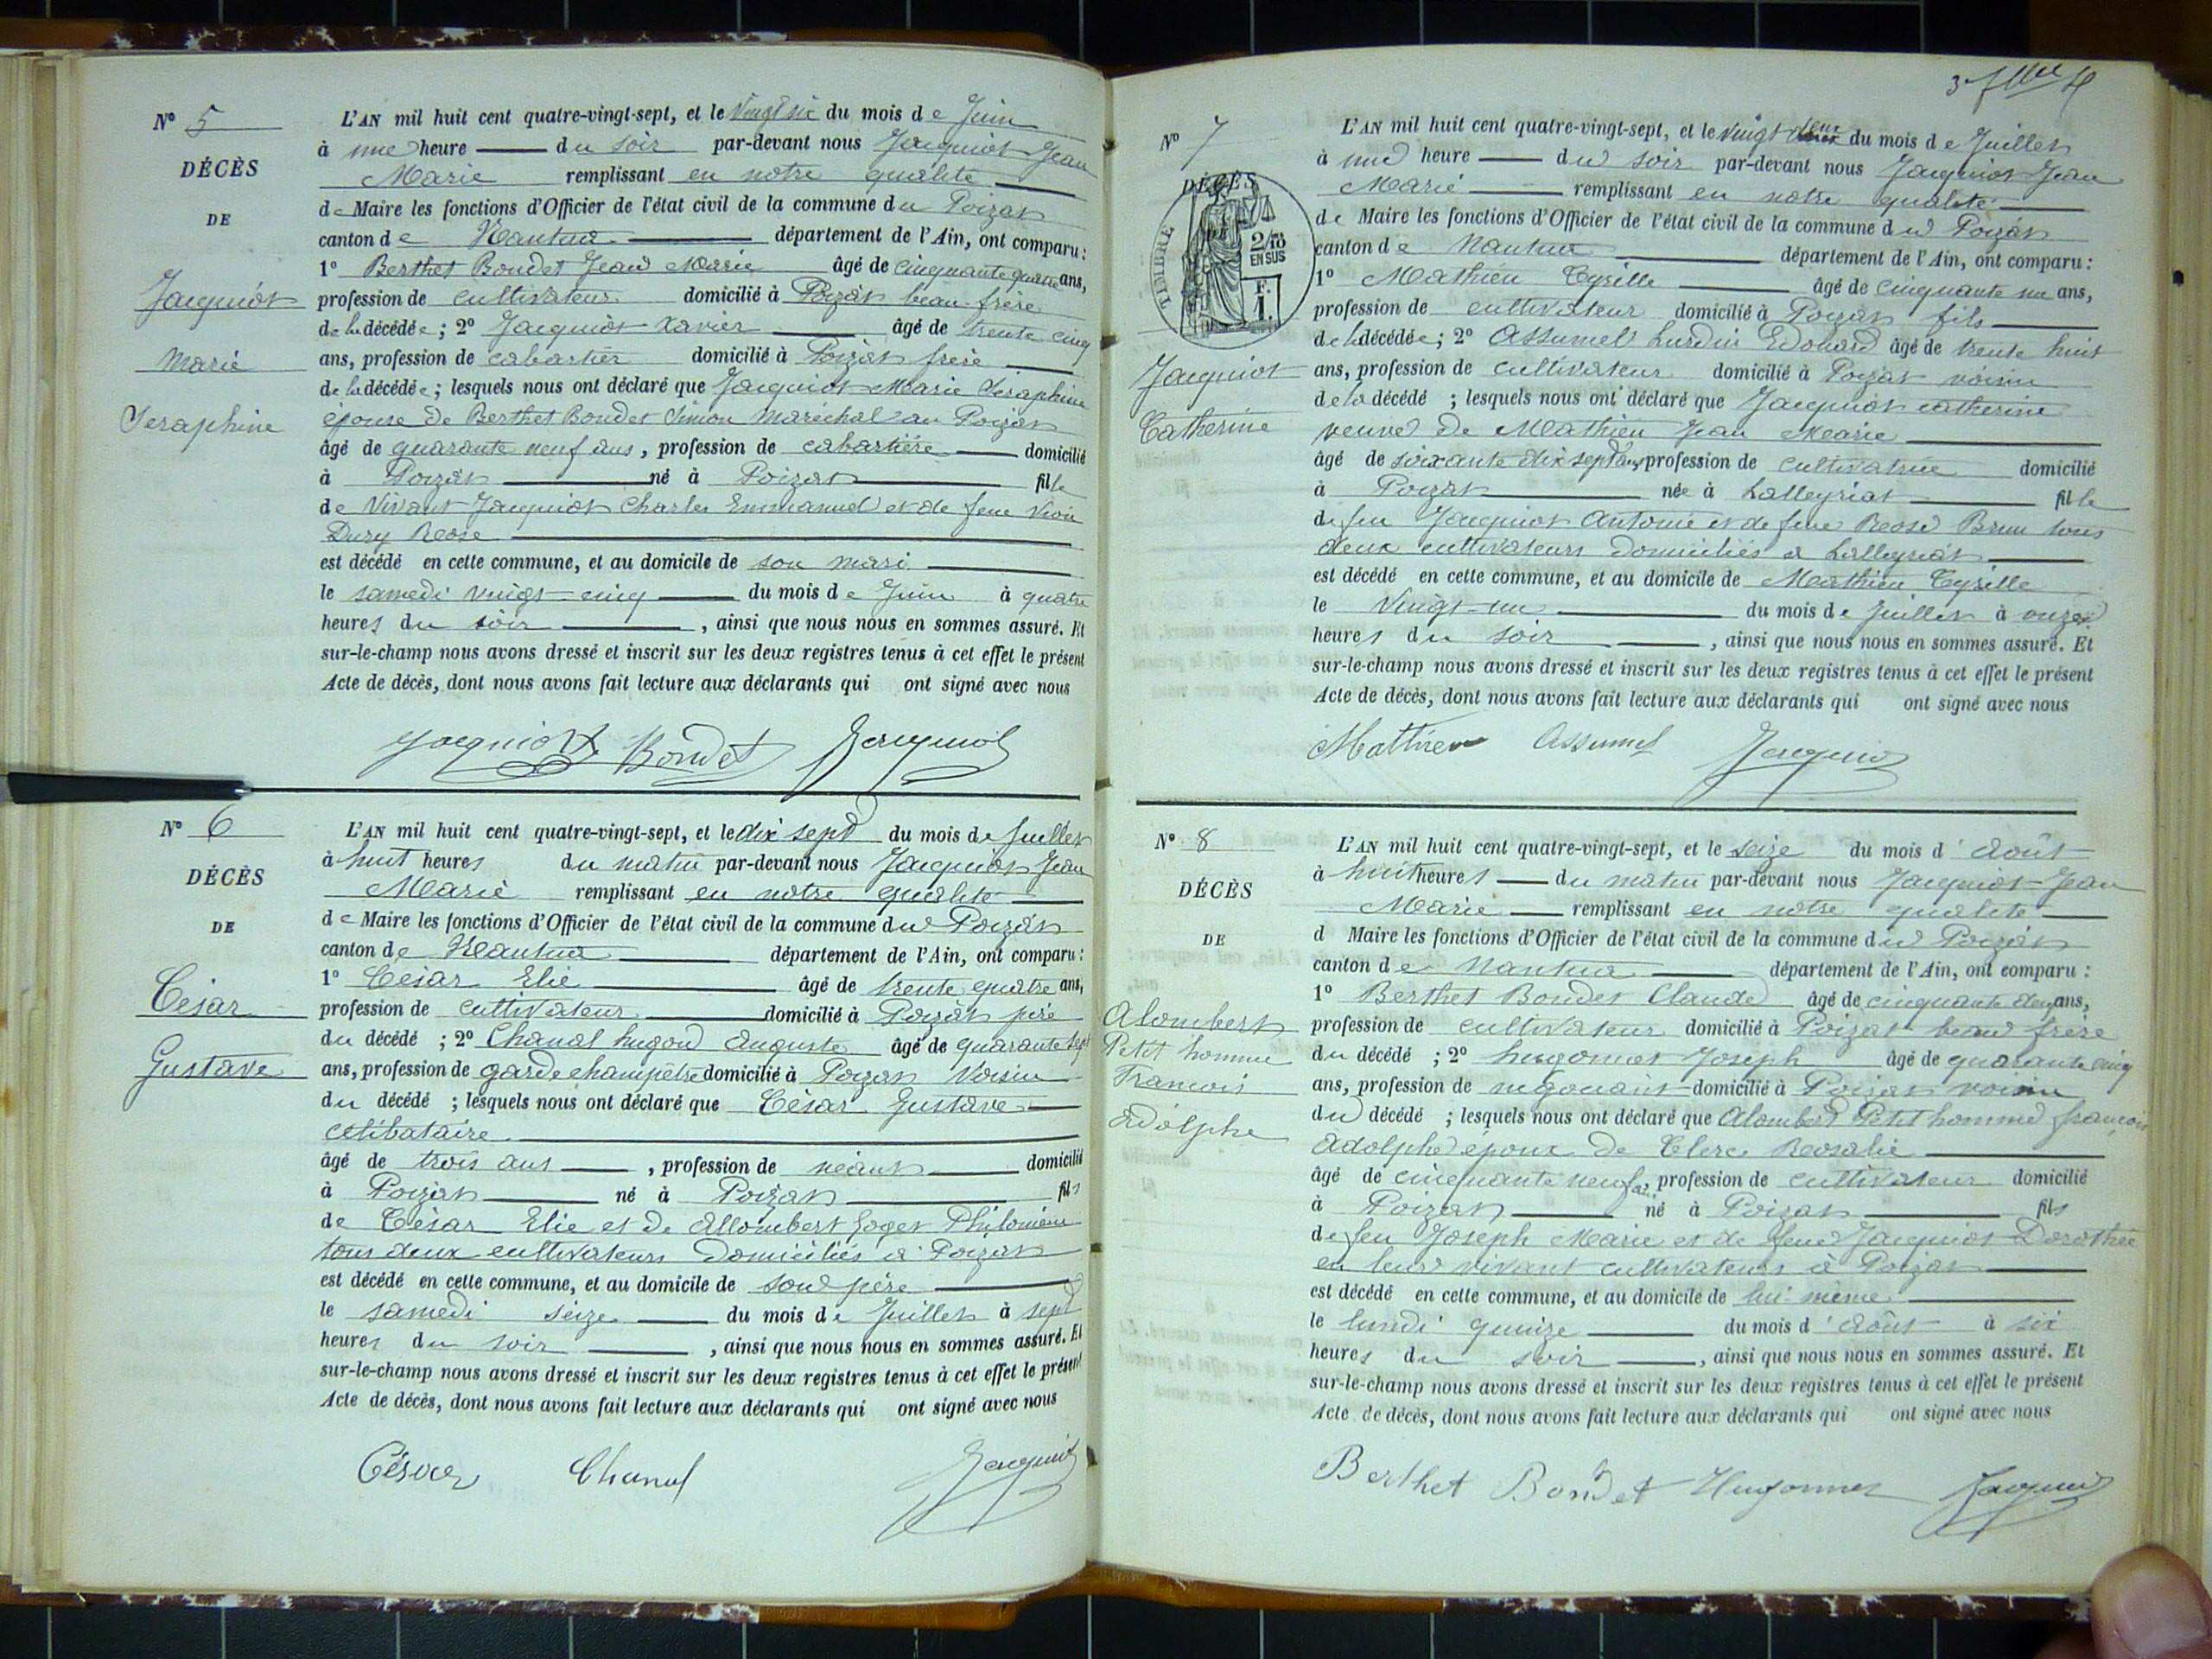 N° 5
DÉCÈS
DE
Jacquiot
Marie
Seraphine
L'AN mil huit cent quatre-vingt-sept, et le vingt six du mois de Juin
à une heure du soir par-devant nous Jacquiot Jean
Marie remplissant en notre qualité
de Maire les fonctions d'Officier de l'état civil de la commune du Poizat
canton de Nantua département de l'Ain, ont comparu :
1° Berthet Bondet Jean Marie âgé de cinquante quatre ans,
profession de cultivateur domicilié à Poizat beau-frère
de la décédée ; 2° Jacquiot Xavier âgé de trente cinq
ans, profession de cabartier domicilié à Poizat frère
de la décédée ; lesquels nous ont déclaré que Jacquiot Marie Séraphine
épouse de Berthet Bondet Simon Maréchal au Poizat
âgé de quarante neuf ans, profession de cabartière domicilié
à Poizat né à Poizat fille
de vivant Jacquiot Charles Emmanuel et de feue
Rose
est décédé en cette commune, et au domicile de son mari
le samedi vingt-cinq du mois de Juin à quatre
heures du soir, ainsi que nous nous en sommes assuré. Et
sur-le-champ nous avons dressé et inscrit sur les deux registres tenus à cet effet le présent
Acte de décès, dont nous avons fait lecture aux déclarants qui ont signé avec nous
Jacquiot Bondet Jacquiot
N° 6
DÉCÈS
DE
César
Gustave
L'AN mil huit cent quatre-vingt-sept, et le dix sept du mois de Juillet
à huit heures du matin par-devant nous Jacquiot Jean
Marie remplissant en notre qualité
de Maire les fonctions d'Officier de l'état civil de la commune du Poizat
canton de Nantua département de l'Ain, ont comparu :
1° César Elie âgé de trente quatre ans,
profession de cultivateur domicilié à Poizat père
du décédé ; 2° Chanal hugon Auguste âgé de quarante sept
ans, profession de garde champetre domicilié à Poizat voisin
du décédé ; lesquels nous ont déclaré que César Gustave
célibataire
âgé de trois ans, profession de néant domicilié
à Poizat né à Poizat fils
de César Elie et de Allombert Goget Philomène
tous deux cultivateurs domiciliés à Poizat
est décédé en cette commune, et au domicile de son père
le samedi seize du mois de Juillet à sept
heures du soir, ainsi que nous nous en sommes assuré. Et
sur-le-champ nous avons dressé et inscrit sur les deux registres tenus à cet effet le présent
Acte de décès, dont nous avons fait lecture aux déclarants qui ont signé avec nous
César Chanal Jacquiot
N° 7
DÉCÈS
DE
TIMBRE
2/10
EN SUS
F.
1.
Jacquiot
Catherine
L'AN mil huit cent quatre-vingt-sept, et le vingt deux du mois de Juillet
à une heure du soir par-devant nous Jacquiot Jean
Marie remplissant en notre qualité
de Maire les fonctions d'Officier de l'état civil de la commune du Poizat
canton de Nantua département de l'Ain, ont comparu :
1° Mathieu Cyrille âgé de cinquante un ans,
profession de cultivateur domicilié à Poizat fils
de la décédée ; 2° Assumel Lurdin Edouard âgé de trente huit
ans, profession de cultivateur domicilié à Poizat voisin
de la décédé ; lesquels nous ont déclaré que Jacquiot catherine
veuve de Mathieu Jean Marie
âgé de soixante dix sept ans profession de cultivatrice domicilié
à Poizat née à Lalleyriat fille
de feu Jacquiot Antoine et de feue Rose Brun tous
deux cultivateurs domiciliés à Lalleyriat
est décédé en cette commune, et au domicile de Mathieu Cyrille
le vingt-un du mois de Juillet à onze
heures du soir, ainsi que nous nous en sommes assuré. Et
sur-le-champ nous avons dressé et inscrit sur les deux registres tenus à cet effet le présent
Acte de décès, dont nous avons fait lecture aux déclarants qui ont signé avec nous
Mathieu Assumel Jacquiot
N° 8
DÉCÈS
DE
Alombert
Petit homme
Francois
Adolphe
L'AN mil huit cent quatre-vingt-sept, et le seize du mois d'Août
à huit heures du matin par-devant nous Jacquiot Jean
Marie remplissant en notre qualité
d Maire les fonctions d'Officier de l'état civil de la commune du Poizat
canton de Nantua département de l'Ain, ont comparu :
1° Berthet Bondet Claude âgé de cinquante deux ans,
profession de cultivateur domicilié à Poizat beau frère
du décédé ; 2° hugonnet Joseph âgé de quarante cinq
ans, profession de négociant domicilié à Poizat voisin
du décédé ; lesquels nous ont déclaré que Alombert Petit homme françois
Adolphe époux de Clerc Rosalie
âgé de cinquante neuf ans profession de cultivateur domicilié
à Poizat né à Poizat fils
de feu Joseph Marie et de feue Jacquiot Dorothée
en leur vivant cultivateurs à Poizat
est décédé en cette commune, et au domicile de lui-même
le lundi quinze du mois d'Août à six
heures du soir, ainsi que nous nous en sommes assuré. Et
sur-le-champ nous avons dressé et inscrit sur les deux registres tenus à cet effet le présent
Acte de décès, dont nous avons fait lecture aux déclarants qui ont signé avec nous
Berthet Bondet Hugonnet Jacquiot